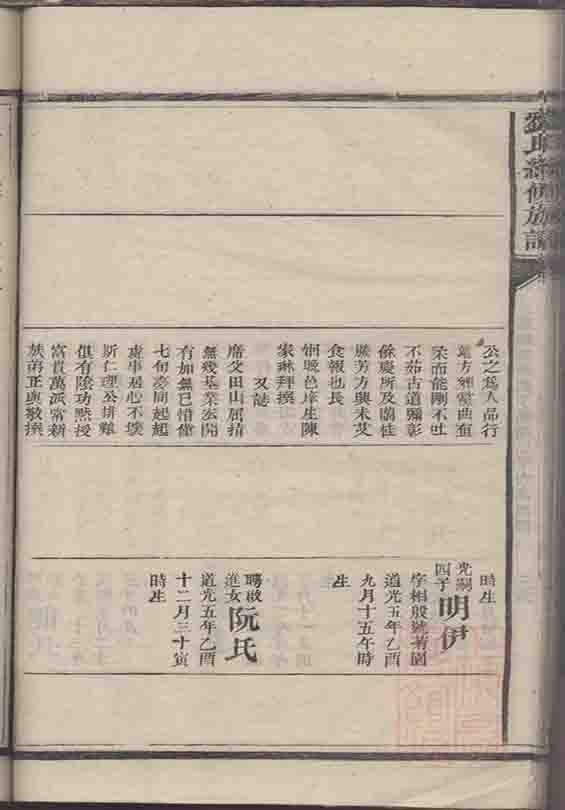 公之為人品行
柔而能剛不吐
不茹古道顯彰
餘慶所及蘭桂
騰芳方興未艾
食報也長
姻晚邑庠生陳
家琳拜撰
又誌
席父田山屈指
無幾基業宏開
有如無已惜偉
七旬臺駒起起
處事居心不壞
斯仁理公排難
俱有陰功默授
富貴萬派常新
族弟正興敬撰
時生
光嗣四子
明伊
字相殷號若園
道光五年乙酉
九月十五午時
生
聘啟進女
阮氏
道光五年乙酉
十二月三十寅
時生